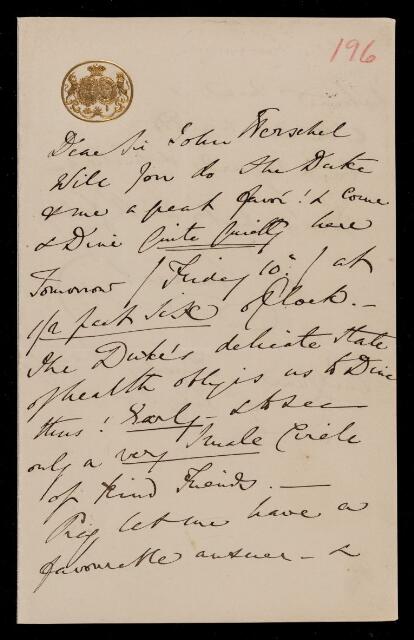 196
Dear Sir John Herschel
Will you do the Duke
& me a great favor! & come
& Dine quite quietly here
Tomorrow (Friday 10th) at
1/2 past Six o'Clock. —
The Duke's delicate state
of health obliges us to Dine
thus! Early — & to see
only a very small Circle
of kind Friends. —
Pray let me have a
favourable answer — &